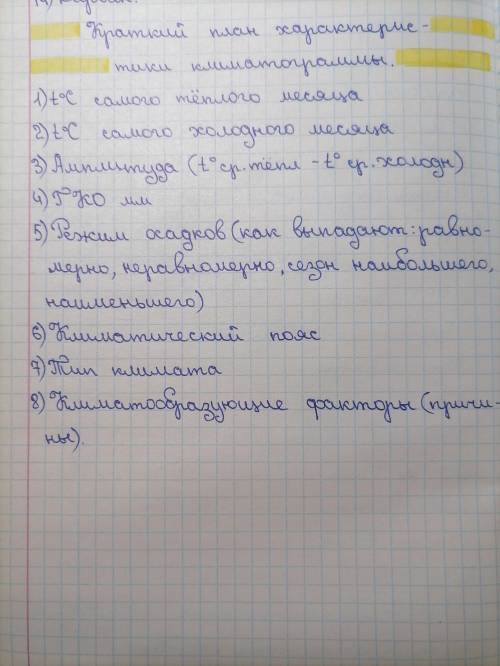 Краткий план характерис-
тики климатограммы.
1) t°C самого тёплого месяца
2) t°C самого холодного месяца
3) Амплитуда (t° ср. тепл - t° ср. холодн)
4) ГКО мм
5) Режим осадков (как выпадают: равно-
мерно, неравномерно, сезон наибольшего,
наименьшего)
6) Климатический пояс
7) Тип климата
8) Климатообразующие факторы (причи-
ны).